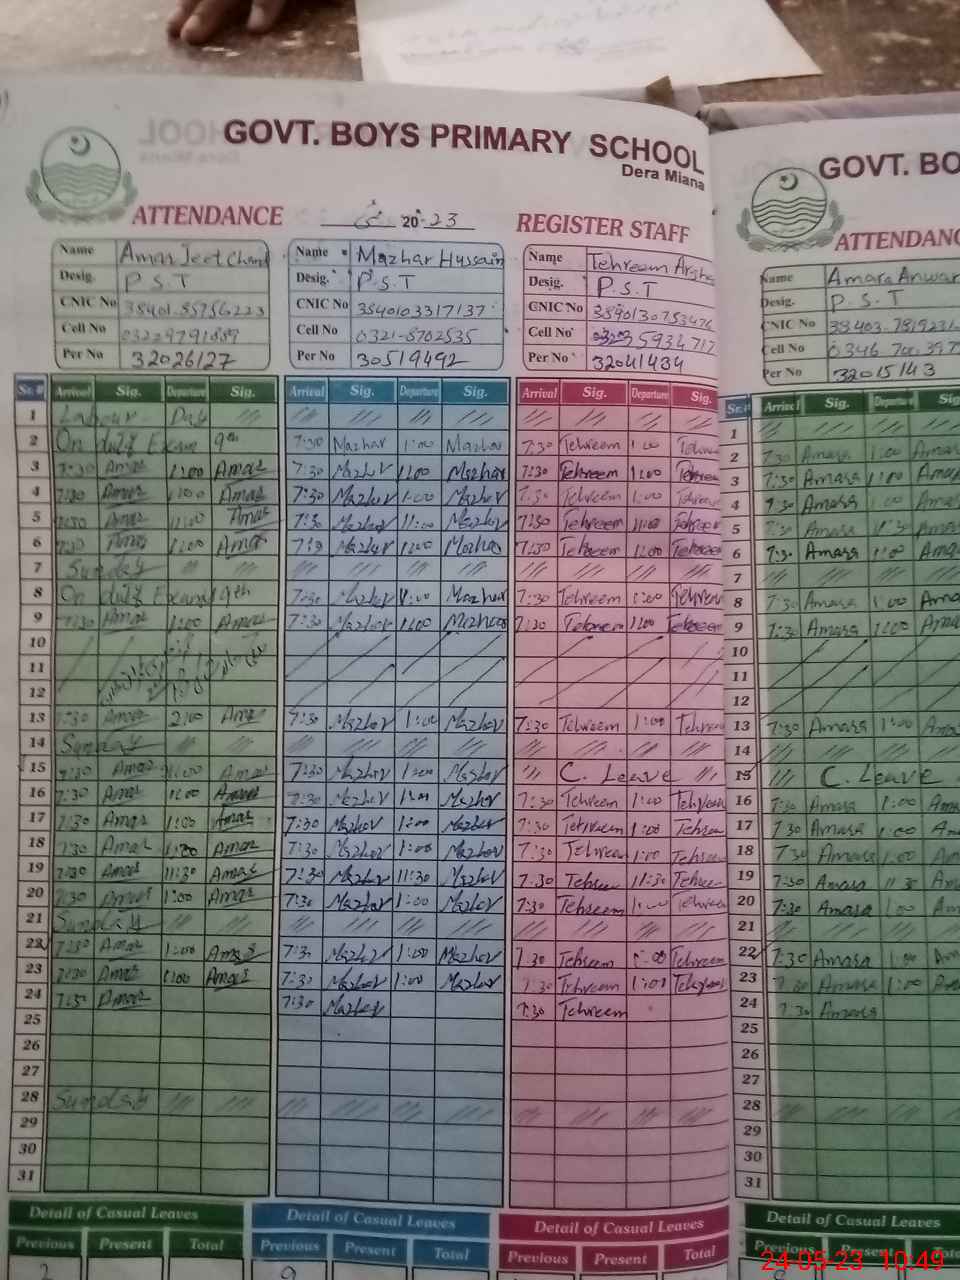 GOVT. BOYS PRIMARY SCHOOL
Dera Miana
ATTENDANCE 5 20 23 REGISTER STAFF
Name Amar Jeet Chand Name Mazhar Hussain Name Tehreem
Desig. P.S.T Desig. P.S.T Desig. P.S.T
CNIC No CNIC No 3840103317137 CNIC No
Cell No Cell No 0321-8702535 Cell No
Per No 32026127 Per No 30519492 Per No 32041434
Sr. # Arrival Sig. Departure Sig. Arrival Sig. Departure Sig. Arrival Sig. Departure Sig.
1 Labour Day
2 On duty Exam 9th 7:30 Mazhar 1:00 Mazhar 7:30 Tehreem 1:00
3 7:30 Amar 1:00 Amar 7:30 Mazhar 1:00 Mazhar 7:30 Tehreem 1:00 Tehreem
4 7:30 Amar 1:00 Amar 7:30 Mazhar 1:00 Mazhar 7:30 Tehreem 1:00 Tehreem
5 7:30 Amar 11:00 Amar 7:30 Mazhar 11:00 Mazhar 7:30 Tehreem 11:00 Tehreem
6 7:30 Amar 1:00 Amar 7:30 Mazhar 1:00 Mazhar 7:30 Tehreem 1:00 Tehreem
7 Sunday
8 On duty Exam 9th 7:30 Mazhar 1:00 Mazhar 7:30 Tehreem 1:00 Tehreem
9 7:30 Amar 1:00 Amar 7:30 Mazhar 1:00 Mazhar 7:30 Tehreem 1:00 Tehreem
10
11
12
13 7:30 Amar 2:00 Amar 7:30 Mazhar 1:00 Mazhar 7:30 Tehreem 1:00 Tehreem
14 Sunday
15 7:30 Amar 1:00 Amar 7:30 Mazhar 1:00 Mazhar C. Leave
16 7:30 Amar 1:00 Amar 7:30 Mazhar 1:00 Mazhar 7:30 Tehreem 1:00 Tehreem
17 7:30 Amar 1:00 Amar 7:30 Mazhar 1:00 Mazhar 7:30 Tehreem 1:00 Tehreem
18 7:30 Amar 1:00 Amar 7:30 Mazhar 1:00 Mazhar 7:30 Tehreem 1:00 Tehreem
19 7:30 Amar 11:30 Amar 7:30 Mazhar 11:30 Mazhar 7:30 Tehreem 11:30 Tehreem
20 7:30 Amar 1:00 Amar 7:30 Mazhar 1:00 Mazhar 7:30 Tehreem 1:00 Tehreem
21 Sunday
22 7:30 Amar 1:00 Amar 7:30 Mazhar 1:00 Mazhar 7:30 Tehreem 1:00 Tehreem
23 7:30 Amar 1:00 Amar 7:30 Mazhar 1:00 Mazhar 7:30 Tehreem 1:00 Tehreem
24 7:30 Amar 7:30 Mazhar 7:30 Tehreem
25
26
27
28 Sunday
29
30
31
Detail of Casual Leaves Detail of Casual Leaves Detail of Casual Leaves
Previous Present Total Previous Present Total Previous Present Total
2 9
GOVT. BO
ATTENDANC
Name Amara Anwar
Desig. P.S.T
CNIC No
Cell No
Per No 32015143
Sr. # Arrival Sig. Departure Sig.
1
2 7:30 Amara 1:00
3 7:30 Amara 1:00
4 7:30 Amara 1:00
5 7:30 Amara
6 7:30 Amara 1:00
7
8 7:30 Amara 1:00
9 7:30 Amara 1:00
10
11
12
13 7:30 Amara 1:00
14
15 C. Leave
16 7:30 Amara 1:00
17 7:30 Amara 1:00
18 7:30 Amara 1:00
19 7:30 Amara 11:30
20 7:30 Amara 1:00
21
22 7:30 Amara 1:00
23 7:30 Amara 1:00
24 7:30 Amara
25
26
27
28
29
30
31
Detail of Casual Leaves
Previous Present Total
24-05-23 10:49